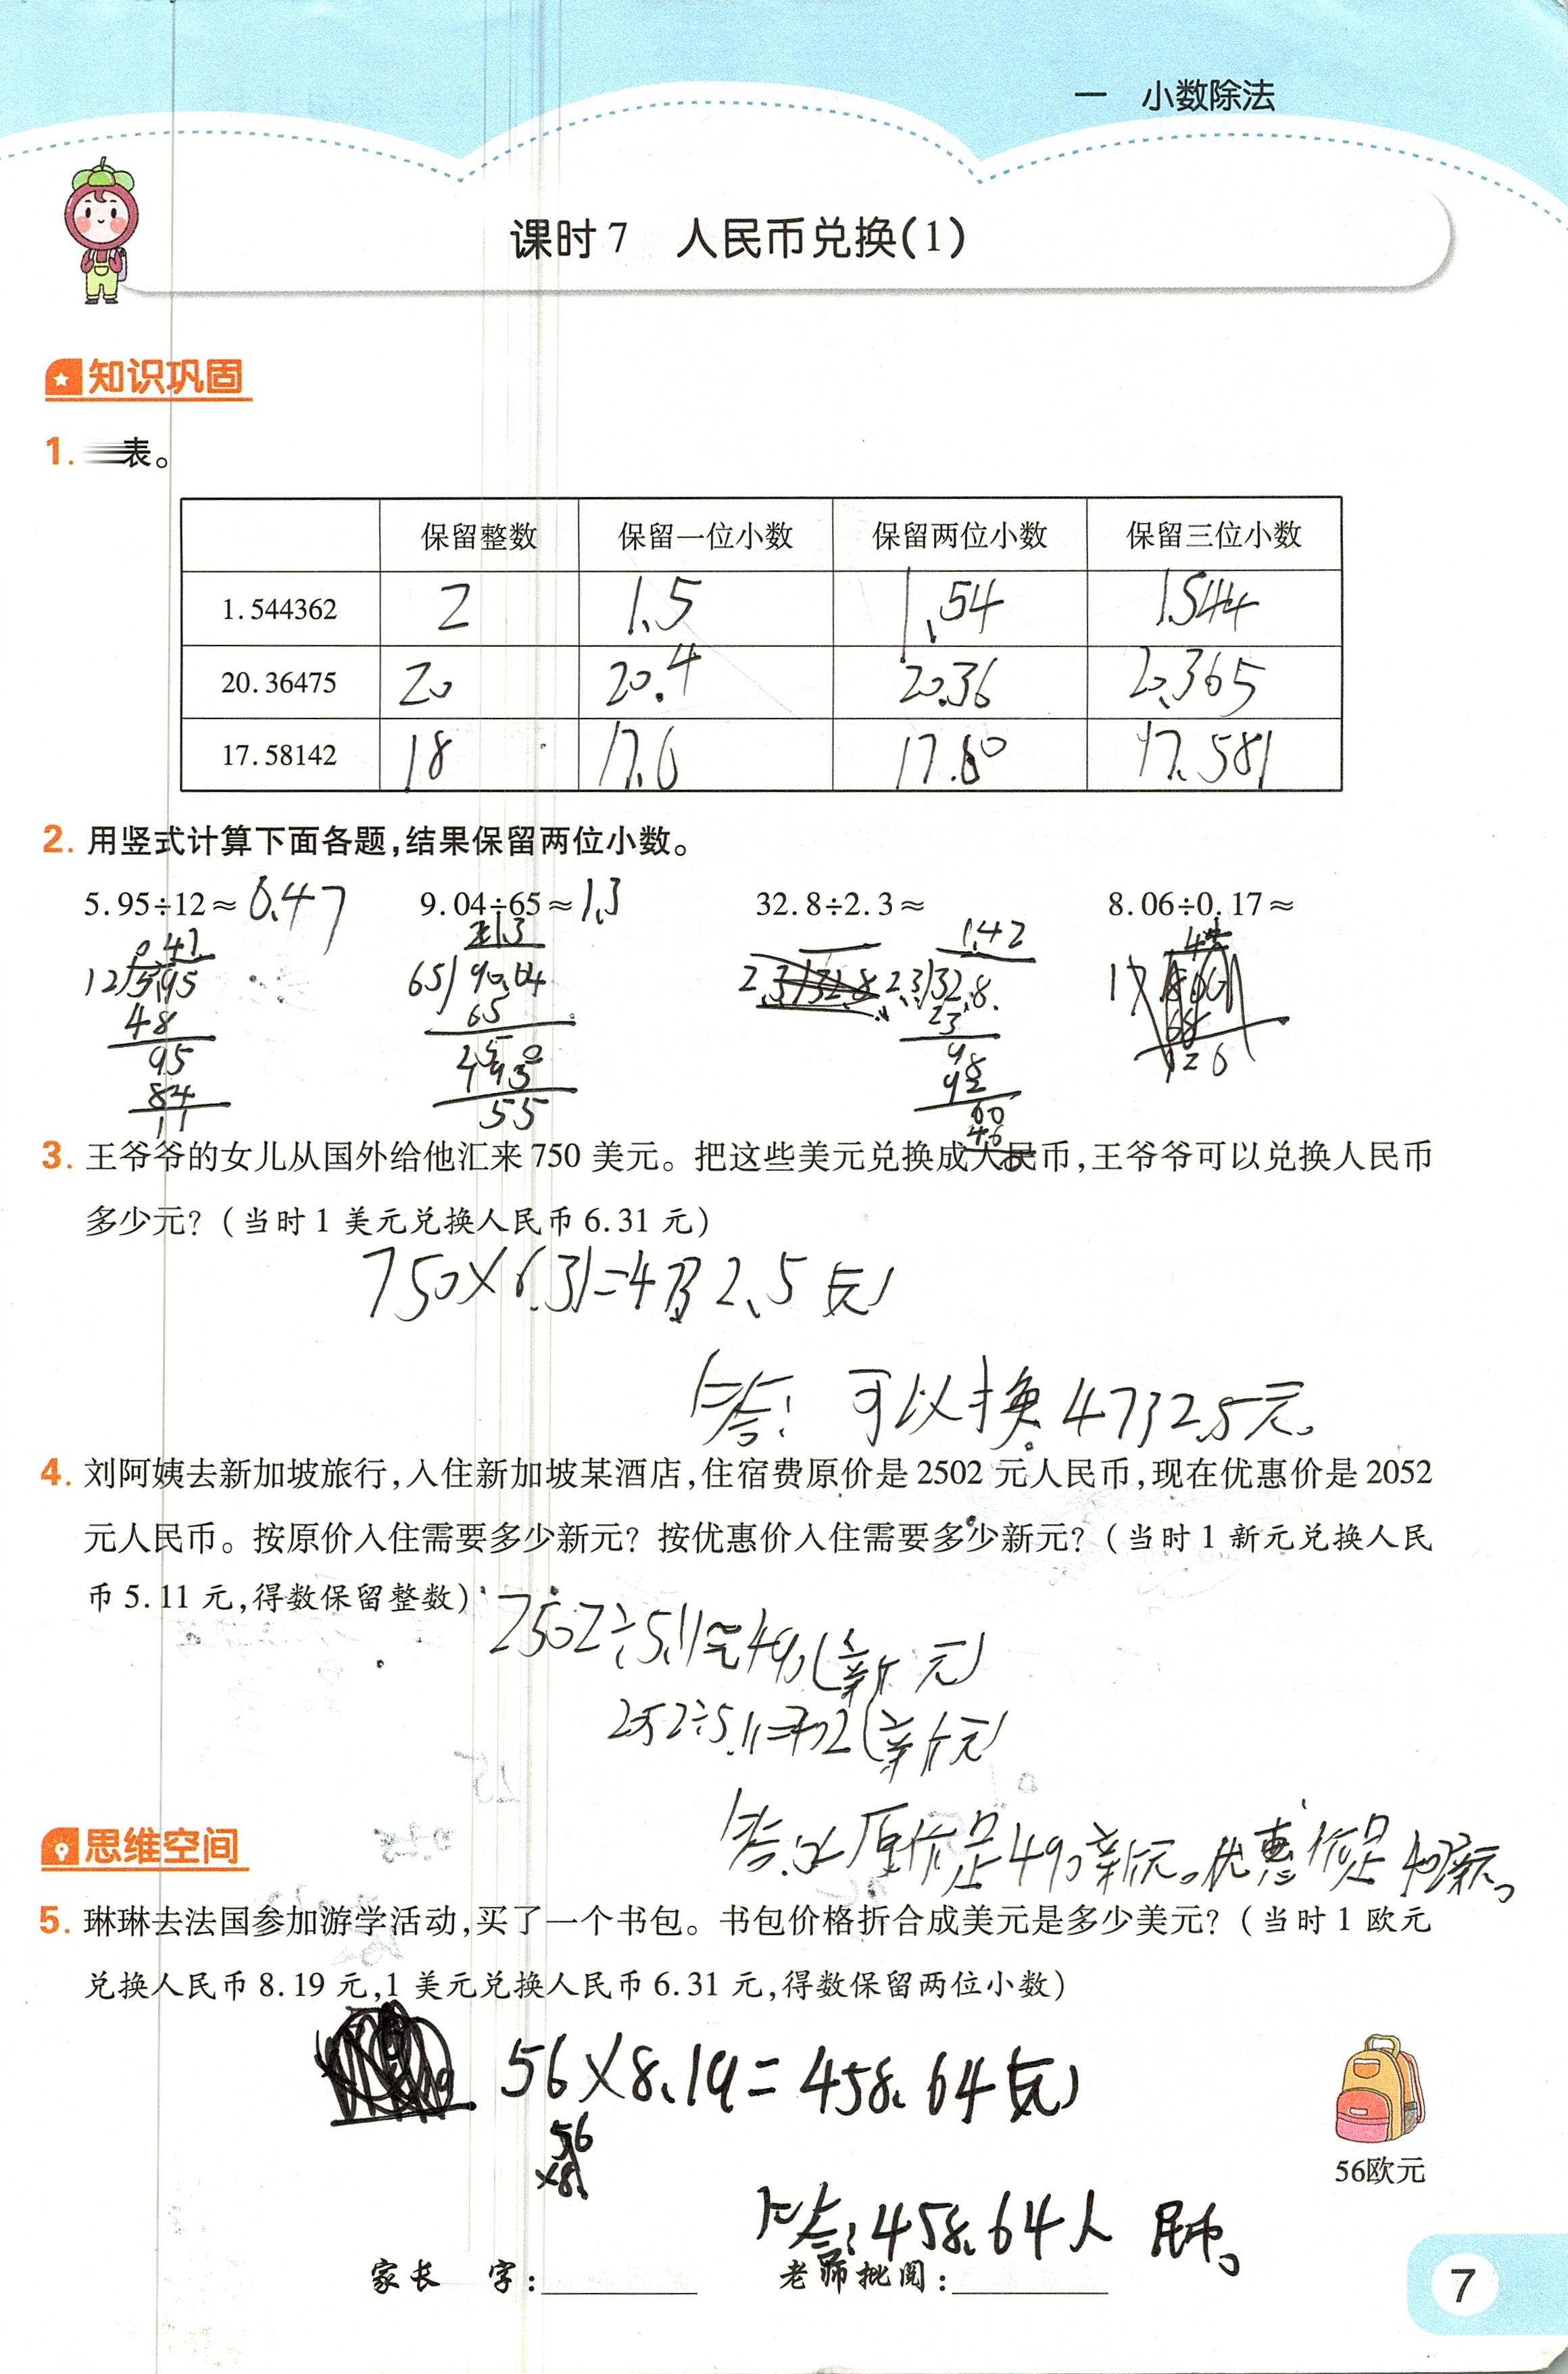 一 小数除法
课时7 人民币兑换(1)
知识巩固
1. 表。
保留整数 保留一位小数 保留两位小数 保留三位小数
1.544362 2 1.5 1.54 1.544
20.36475 20 20.4 20.36 20.365
17.58142 18 17.6 17.581
2. 用竖式计算下面各题,结果保留两位小数。
5.95÷12≈ 0.47 9.04÷65≈ 1.3 32.8÷2.3≈ 8.06÷0.17≈
0.47 1.3 1.42
12 5.95 65 90.04 2.3 32.8 2.3 32.8 17
48 65 23 68
95 250 98 126
84 195 92
11 55 60
46
3. 王爷爷的女儿从国外给他汇来750美元。把这些美元兑换成人民币,王爷爷可以兑换人民币
多少元?(当时1美元兑换人民币6.31元)
750×6.31=4732.5(元)
答:可以换4732.5元。
4. 刘阿姨去新加坡旅行,入住新加坡某酒店,住宿费原价是2502元人民币,现在优惠价是2052
元人民币。按原价入住需要多少新元?按优惠价入住需要多少新元?(当时1新元兑换人民
币5.11元,得数保留整数)
2502÷5.11≈490(新元)
2052÷5.11=402(新元)
答:原价是490新元。优惠价是402新元。
思维空间
5. 琳琳去法国参加游学活动,买了一个书包。书包价格折合成美元是多少美元?(当时1欧元
兑换人民币8.19元,1美元兑换人民币6.31元,得数保留两位小数)
56×8.19=458.64(元)
56
×8.
56欧元
答:458.64人民币。
家长 字: 老师批阅:
7